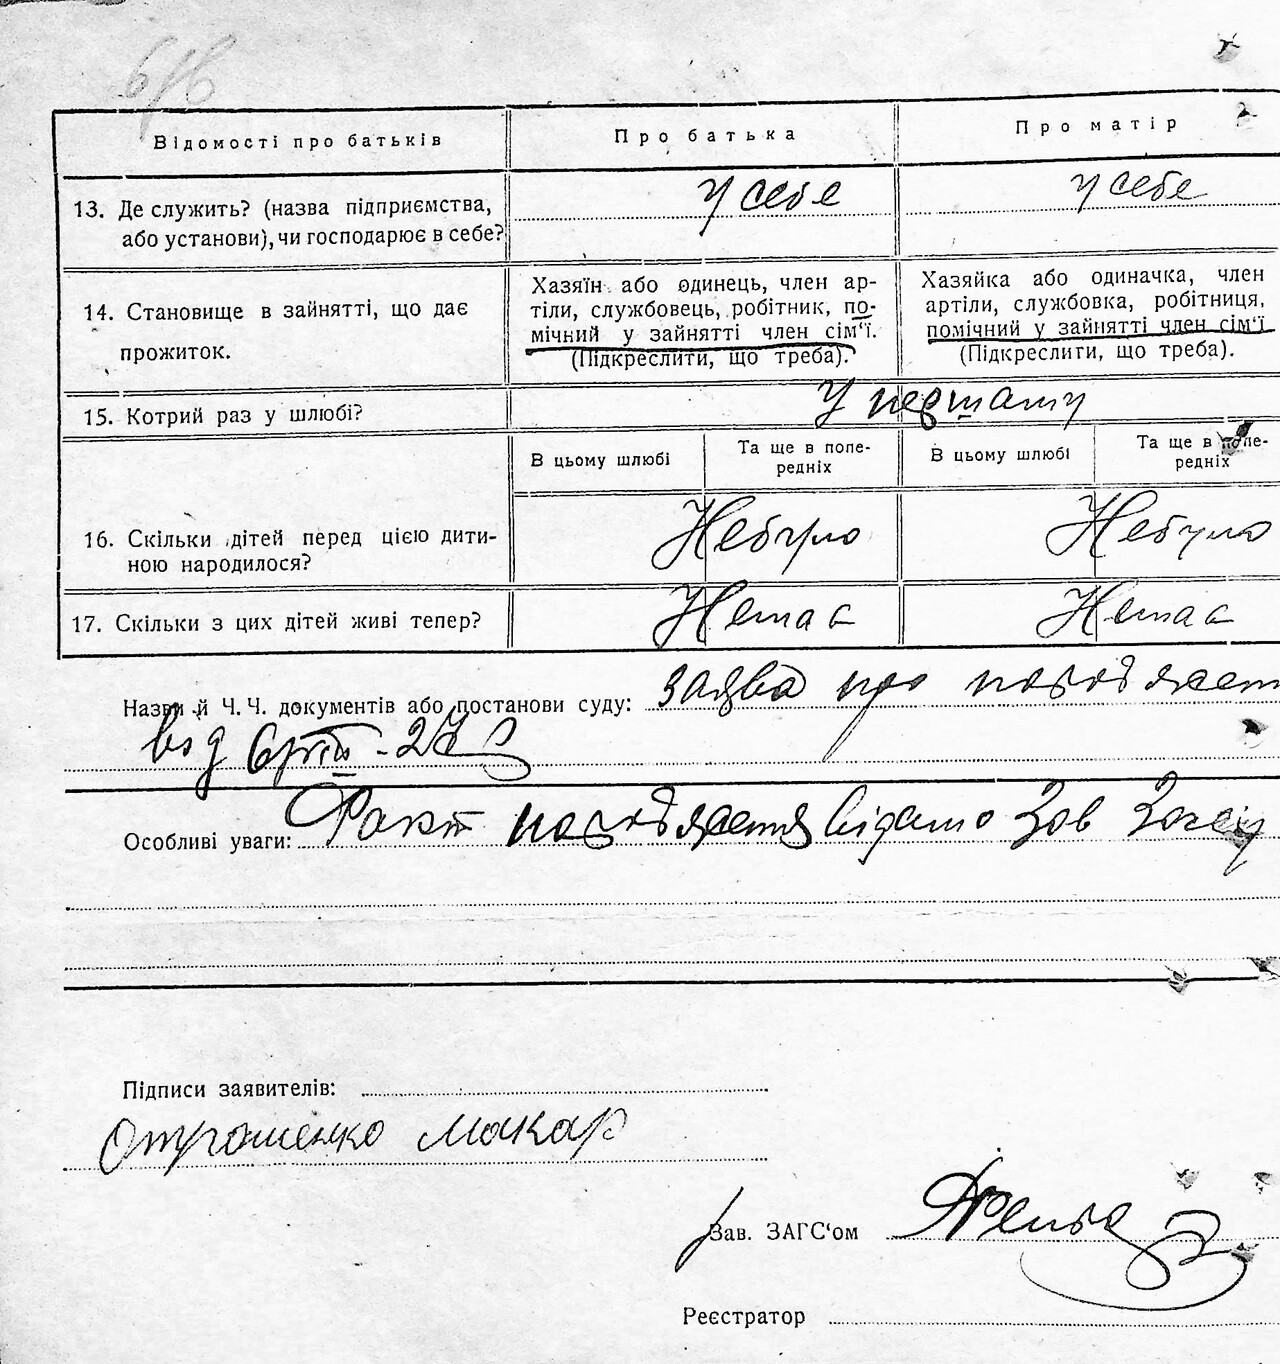 Відомості про батьків
Про батька
Про матір
13. Де служить? (назва підприємства,
або установи), чи господарює в себе?
У себе
У себе
14. Становище в зайнятті, що дає
прожиток.
Хазяїн або одинець, член ар-
тіли, службовець, робітник, по-
мічний у зайнятті член сім'ї.
(Підкреслити, що треба).
Хазяйка або одиначка, член
артіли, службовка, робітниця,
помічний у зайнятті член сім'ї
(Підкреслити, що треба).
15. Котрий раз у шлюбі?
У першому
В цьому шлюбі
Та ще в попе-
редніх
В цьому шлюбі
Та ще в попе-
редніх
16. Скільки дітей перед цією дити-
ною народилося?
Небуло
Небуло
17. Скільки з цих дітей живі тепер?
Немає
Немає
Назви й Ч. Ч. документів або постанови суду: заява про
від
Особливі уваги: Факт відомо Зав
Підписи заявителів:
Отрошенко Макар
Зав. ЗАГС'ом
Реєстратор